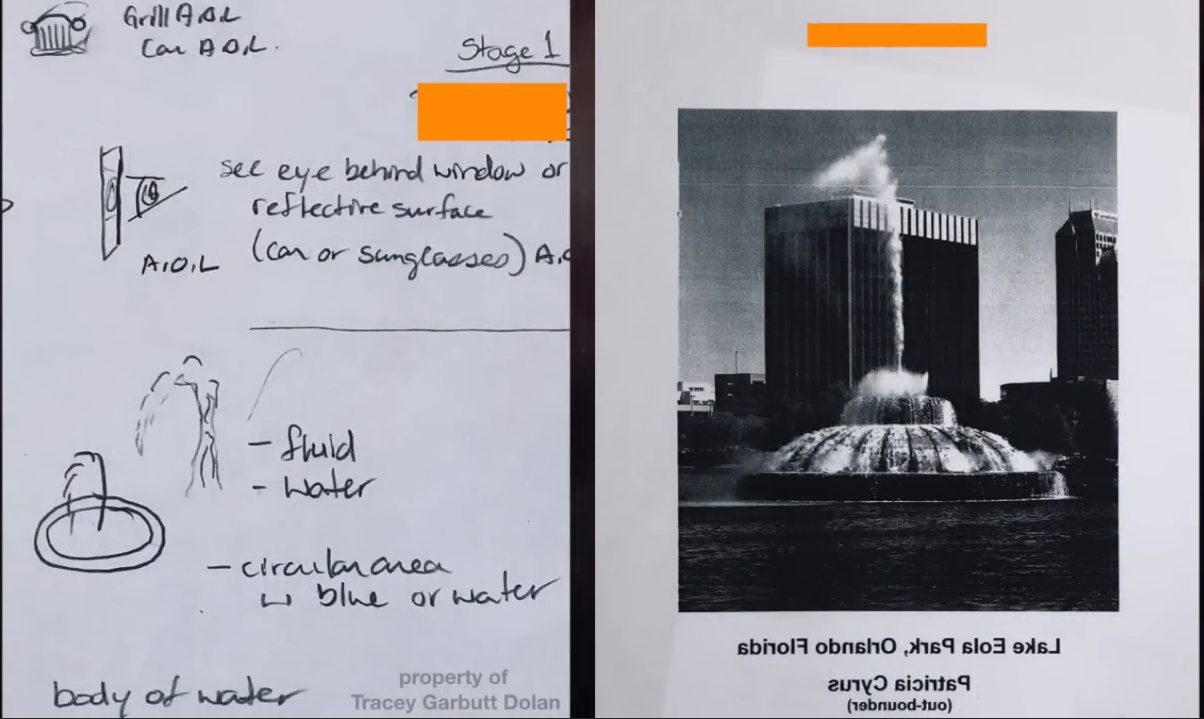 Grill A.O.L
Car A.O.L.
Stage 1
see eye behind window or
reflective surface
A.O.L (car or sunglasses) A.O
- fluid
- water
- circular area
w blue or water
body of water
property of
Tracey Garbutt Dolan
Lake Eola Park, Orlando Florida
Patricia Cyrus
(out-bounder)